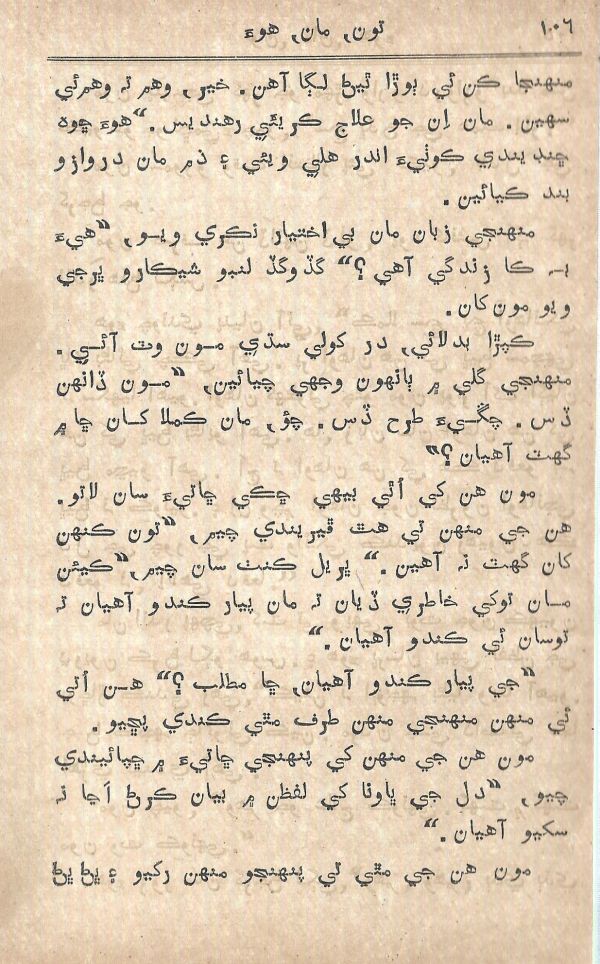 ١٠٦
تون, مان, هوءَ
منهنجا ڪن ئي ٻوڙا ٿيڻ لڳا آهن. خير, وهم تہ وهم ئي
سهين. مان اِن جو علاج ڪريئي رهنديس.“ هوءَ چوہ
ڇنڊيندي ڪوٺيءَ اندر هلي ويئي ۽ ڌم مان دروازو
بند ڪيائين.
منهنجي زبان مان بي اختيار نڪري ويو, ”هيءَ
بہ ڪا زندگي آهي؟“ گڏوگڏ لنبو شيڪارو ڀرجي
ويو مون کان.
ڪپڙا بدلائي, در کولي سڌي مون وٽ آئي.
منهنجي ڳلي ۾ ٻانهون وجهي چيائين, ”مون ڏانهن
ڏس. چڱيءَ طرح ڏس. چؤ, مان ڪملا کان ڇا ۾
گهٽ آهيان؟“
مون هن کي اُٿي بيهي ڇڪي ڇاتيءَ سان لاتو.
هن جي منهن تي هٿ ڦيريندي چيم, ”تون ڪنهن
کان گهٽ نہ آهين.“ ڀريل ڪنٺ سان چيم, ”ڪيئن
مان توکي خاطري ڏيان تہ مان پيار ڪندو آهيان تہ
توسان ئي ڪندو آهيان.“
”جي پيار ڪندو آهيان, ڇا مطلب؟“ هن اُتي
ئي منهن منهنجي منهن طرف مٿي ڪندي پڇيو.
مون هن جي منهن کي پنهنجي ڇاتيءَ ۾ ڇپائيندي
چيو, ”دل جي ڀاونا کي لفظن ۾ بيان ڪرڻ اڃا نہ
سکيو آهيان.“
مون هن جي مٿي تي پنهنجو منهن رکيو ۽ ڀڻ ڀڻ